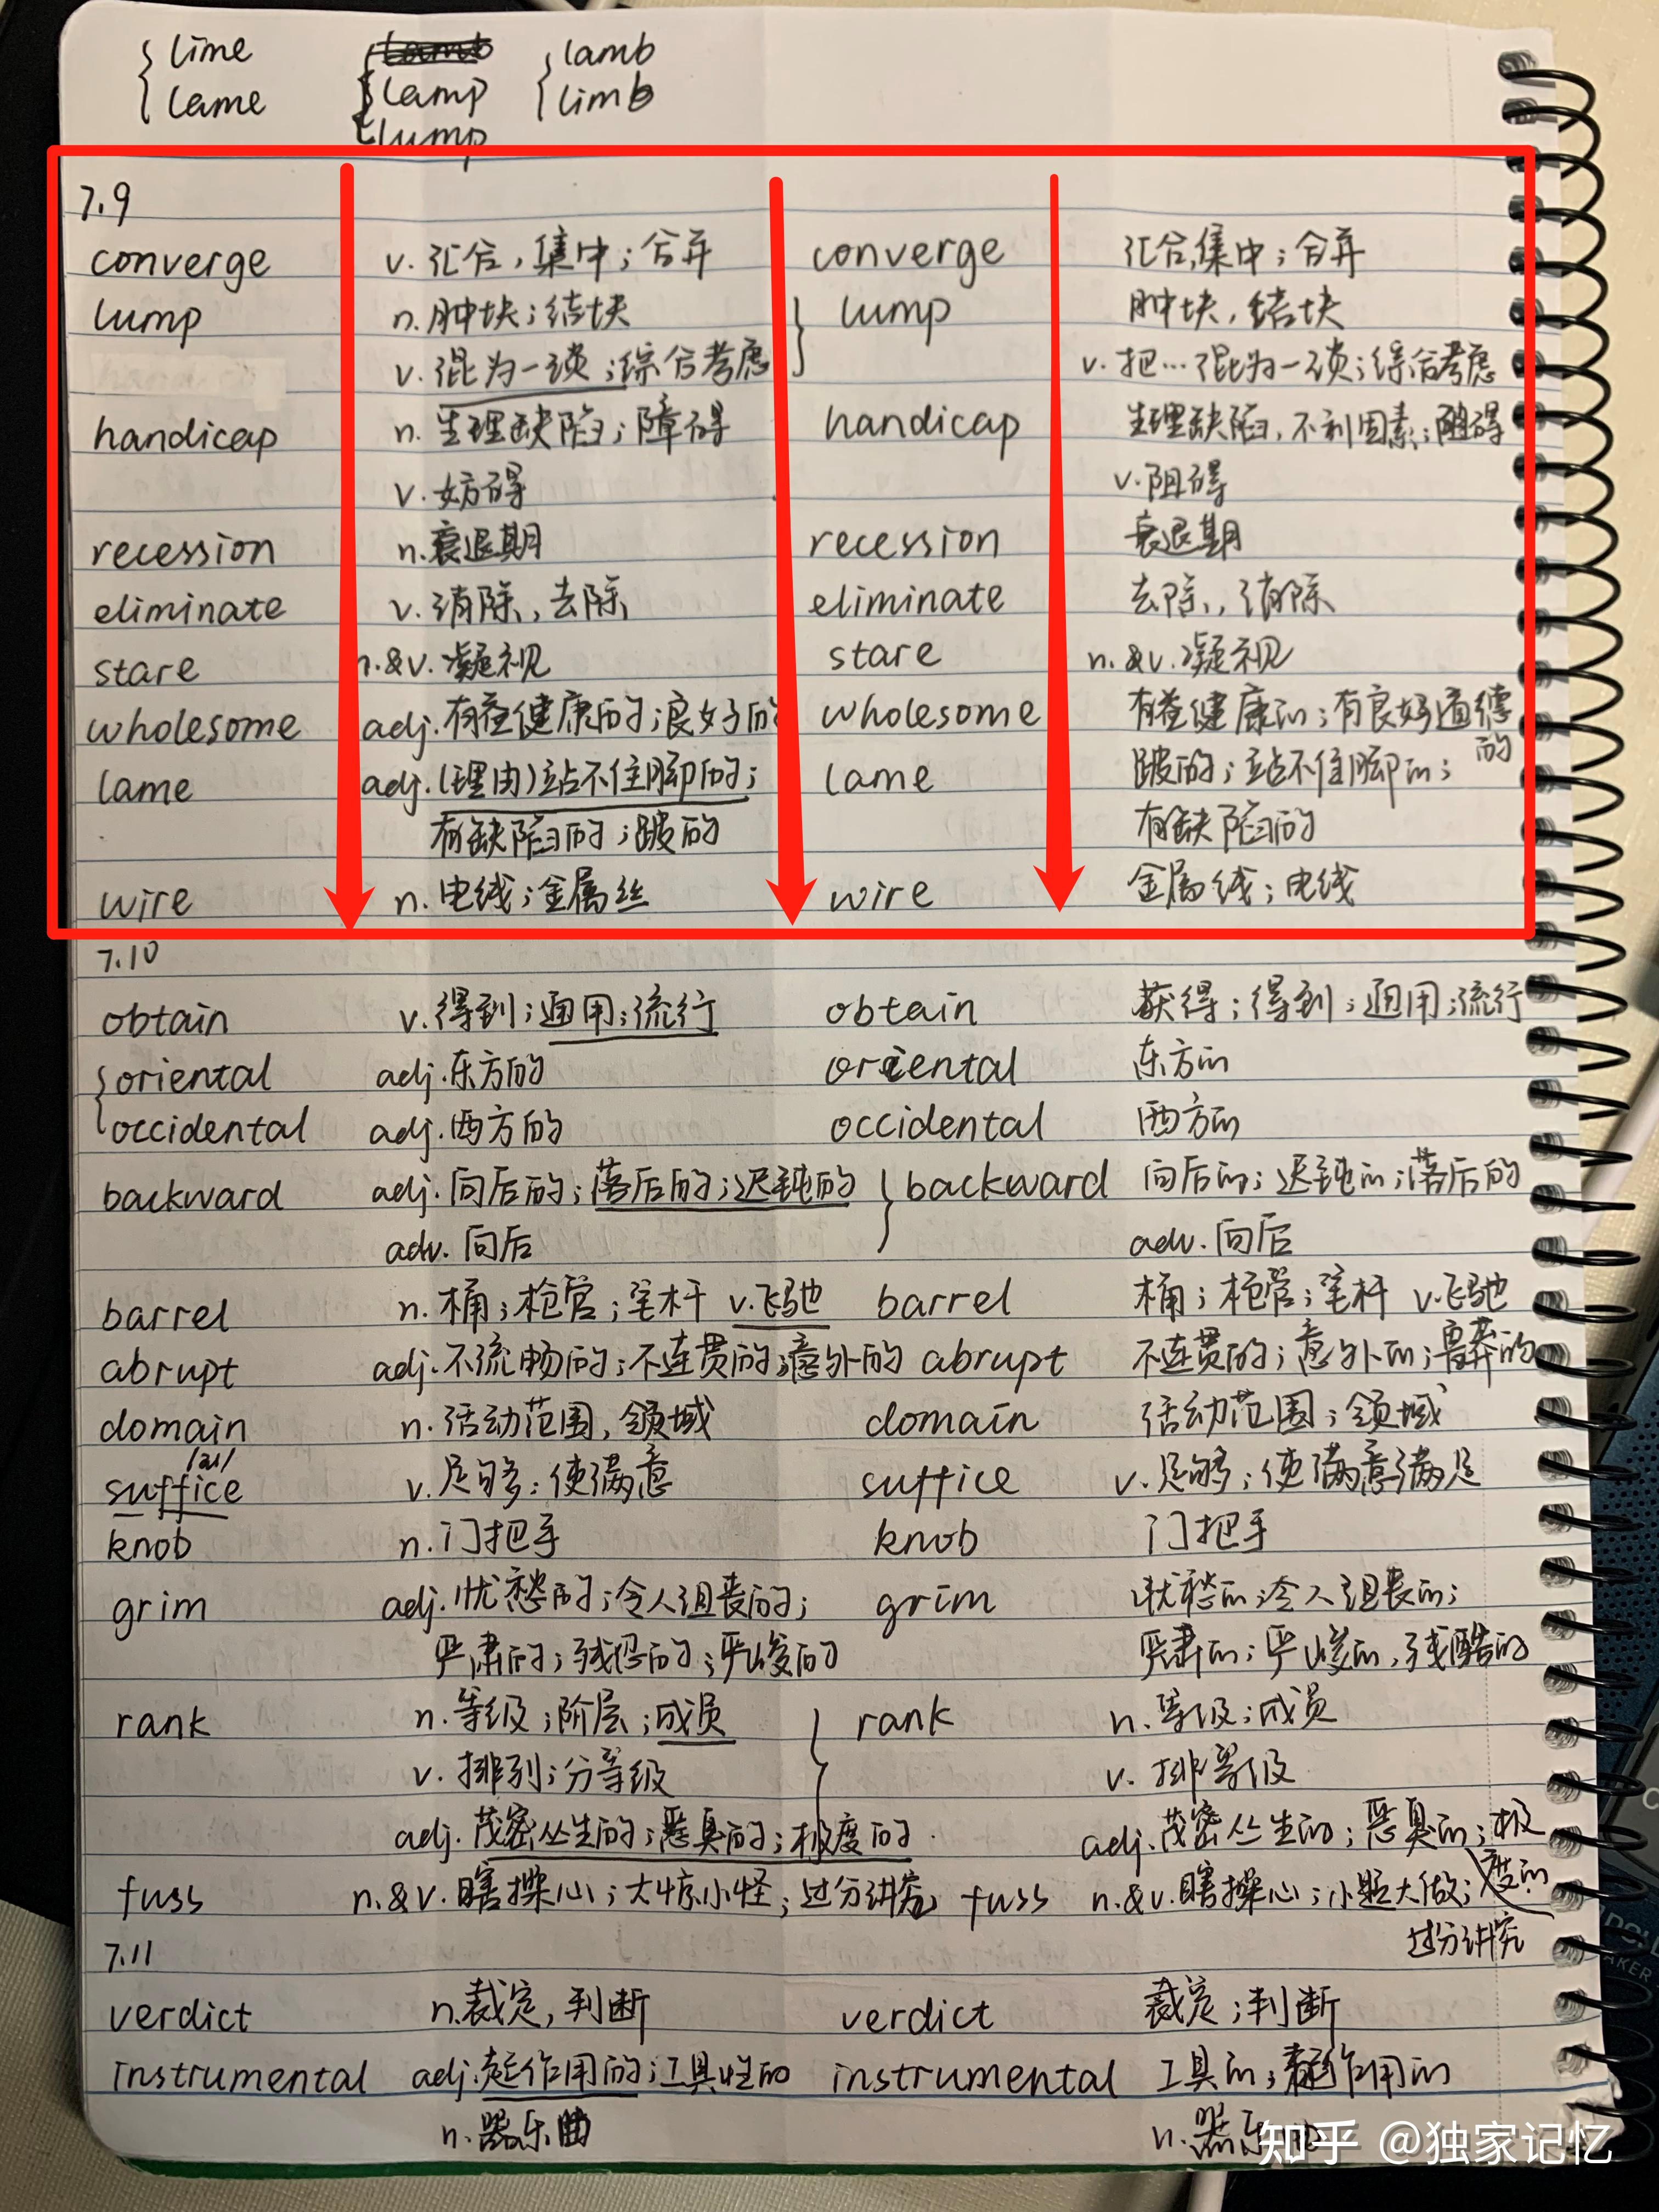 lime lamb lamb
lame lamp limb
lump
7.9
converge v. 汇合，集中；合并 converge 汇合，集中；合并
lump n. 肿块；结块 lump 肿块，结块
v. 混为一谈；综合考虑 v. 把…混为一谈；综合考虑
handicap n. 生理缺陷；障碍 handicap 生理缺陷，不利因素；阻碍
v. 妨碍 v. 阻碍
recession n. 衰退期 recession 衰退期
eliminate v. 消除，去除 eliminate 去除，消除
stare n.&v. 凝视 stare n.&v. 凝视
wholesome adj. 有益健康的；良好的 wholesome 有益健康的；有良好道德的
lame adj. (理由)站不住脚的； lame 跛的；站不住脚的；
有缺陷的；跛的 有缺陷的
wire n. 电线；金属丝 wire 金属线；电线
7.10
obtain v. 得到；通用；流行 obtain 获得；得到；通用；流行
oriental adj. 东方的 oriental 东方的
occidental adj. 西方的 occidental 西方的
backward adj. 向后的；落后的；迟钝的 backward 向后的；迟钝的；落后的
adv. 向后 adv. 向后
barrel n. 桶；枪管；笔杆 v. 飞驰 barrel 桶；枪管；笔杆 v. 飞驰
abrupt adj. 不流畅的；不连贯的；意外的 abrupt 不连贯的；意外的；鲁莽的
domain n. 活动范围，领域 domain 活动范围；领域
suffice v. 足够；使满意 suffice v. 足够；使满意满足
knob n. 门把手 knob 门把手
grim adj. 忧愁的；令人沮丧的； grim 忧愁的；令人沮丧的；
严肃的；残忍的；严峻的 严肃的；严峻的，残酷的
rank n. 等级；阶层；成员 rank n. 等级；成员
v. 排列；分等级 v. 排等级
adj. 茂密丛生的；恶臭的；极度的 adj. 茂密丛生的；恶臭的；极度的
fuss n.&v. 瞎操心；大惊小怪；过分讲究 fuss n.&v. 瞎操心；小题大做；
过分讲究
7.11
verdict n. 裁定，判断 verdict 裁定；判断
instrumental adj. 起作用的；工具性的 instrumental 工具的；起作用的
n. 器乐曲 n. 器乐
知乎 @独家记忆